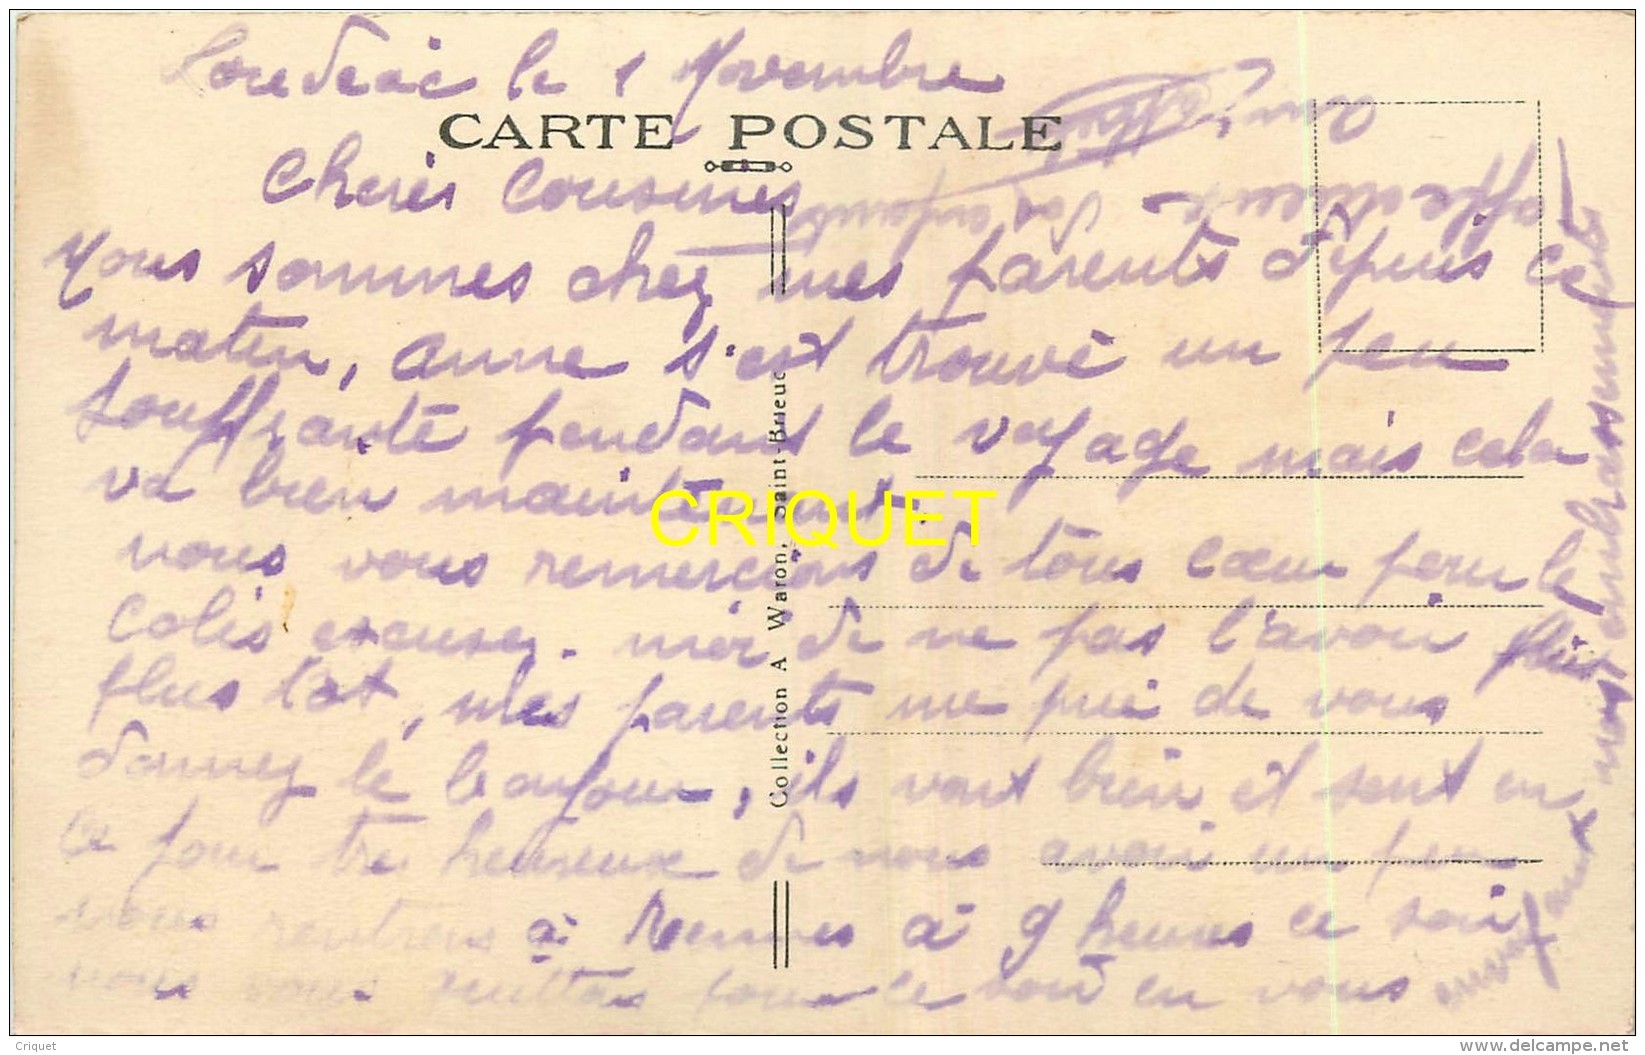 Loudéac le 1 Novembre
CARTE POSTALE
Cheres Cousines
Nous sommes chez mes parents depuis ce
matin, Anne s'est trouvé un peu
souffrante pendant le voyage mais cela
va bien maintenant.
nous vous remercions de tous cœur pour le
colis excusez. moi de ne pas l'avoir plus
plus tôt, mes parents me prie de vous
donnez le bonjour, ils vont bien et sont en
ce jour tre heureux de nous avoir un peu
nous rentrons à Rennes à 9 heures ce soir
nous vous quittons pour ce soir en vous
envoyant nos embrassements
affectueux Vos enfants
Collection A Waron, Saint-Brieuc
CRIQUET
Criquet
www.delcampe.net